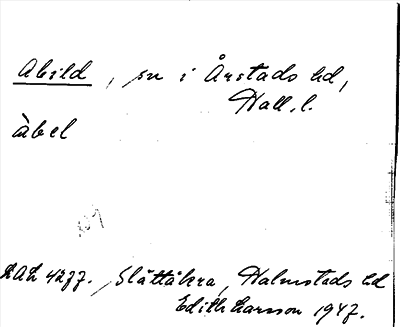 Abild, sn i Årstads hd,
Hall. l.
àbel
LAL 4277. Slättåkra, Halmstads hd
Edith Larsson 1947.